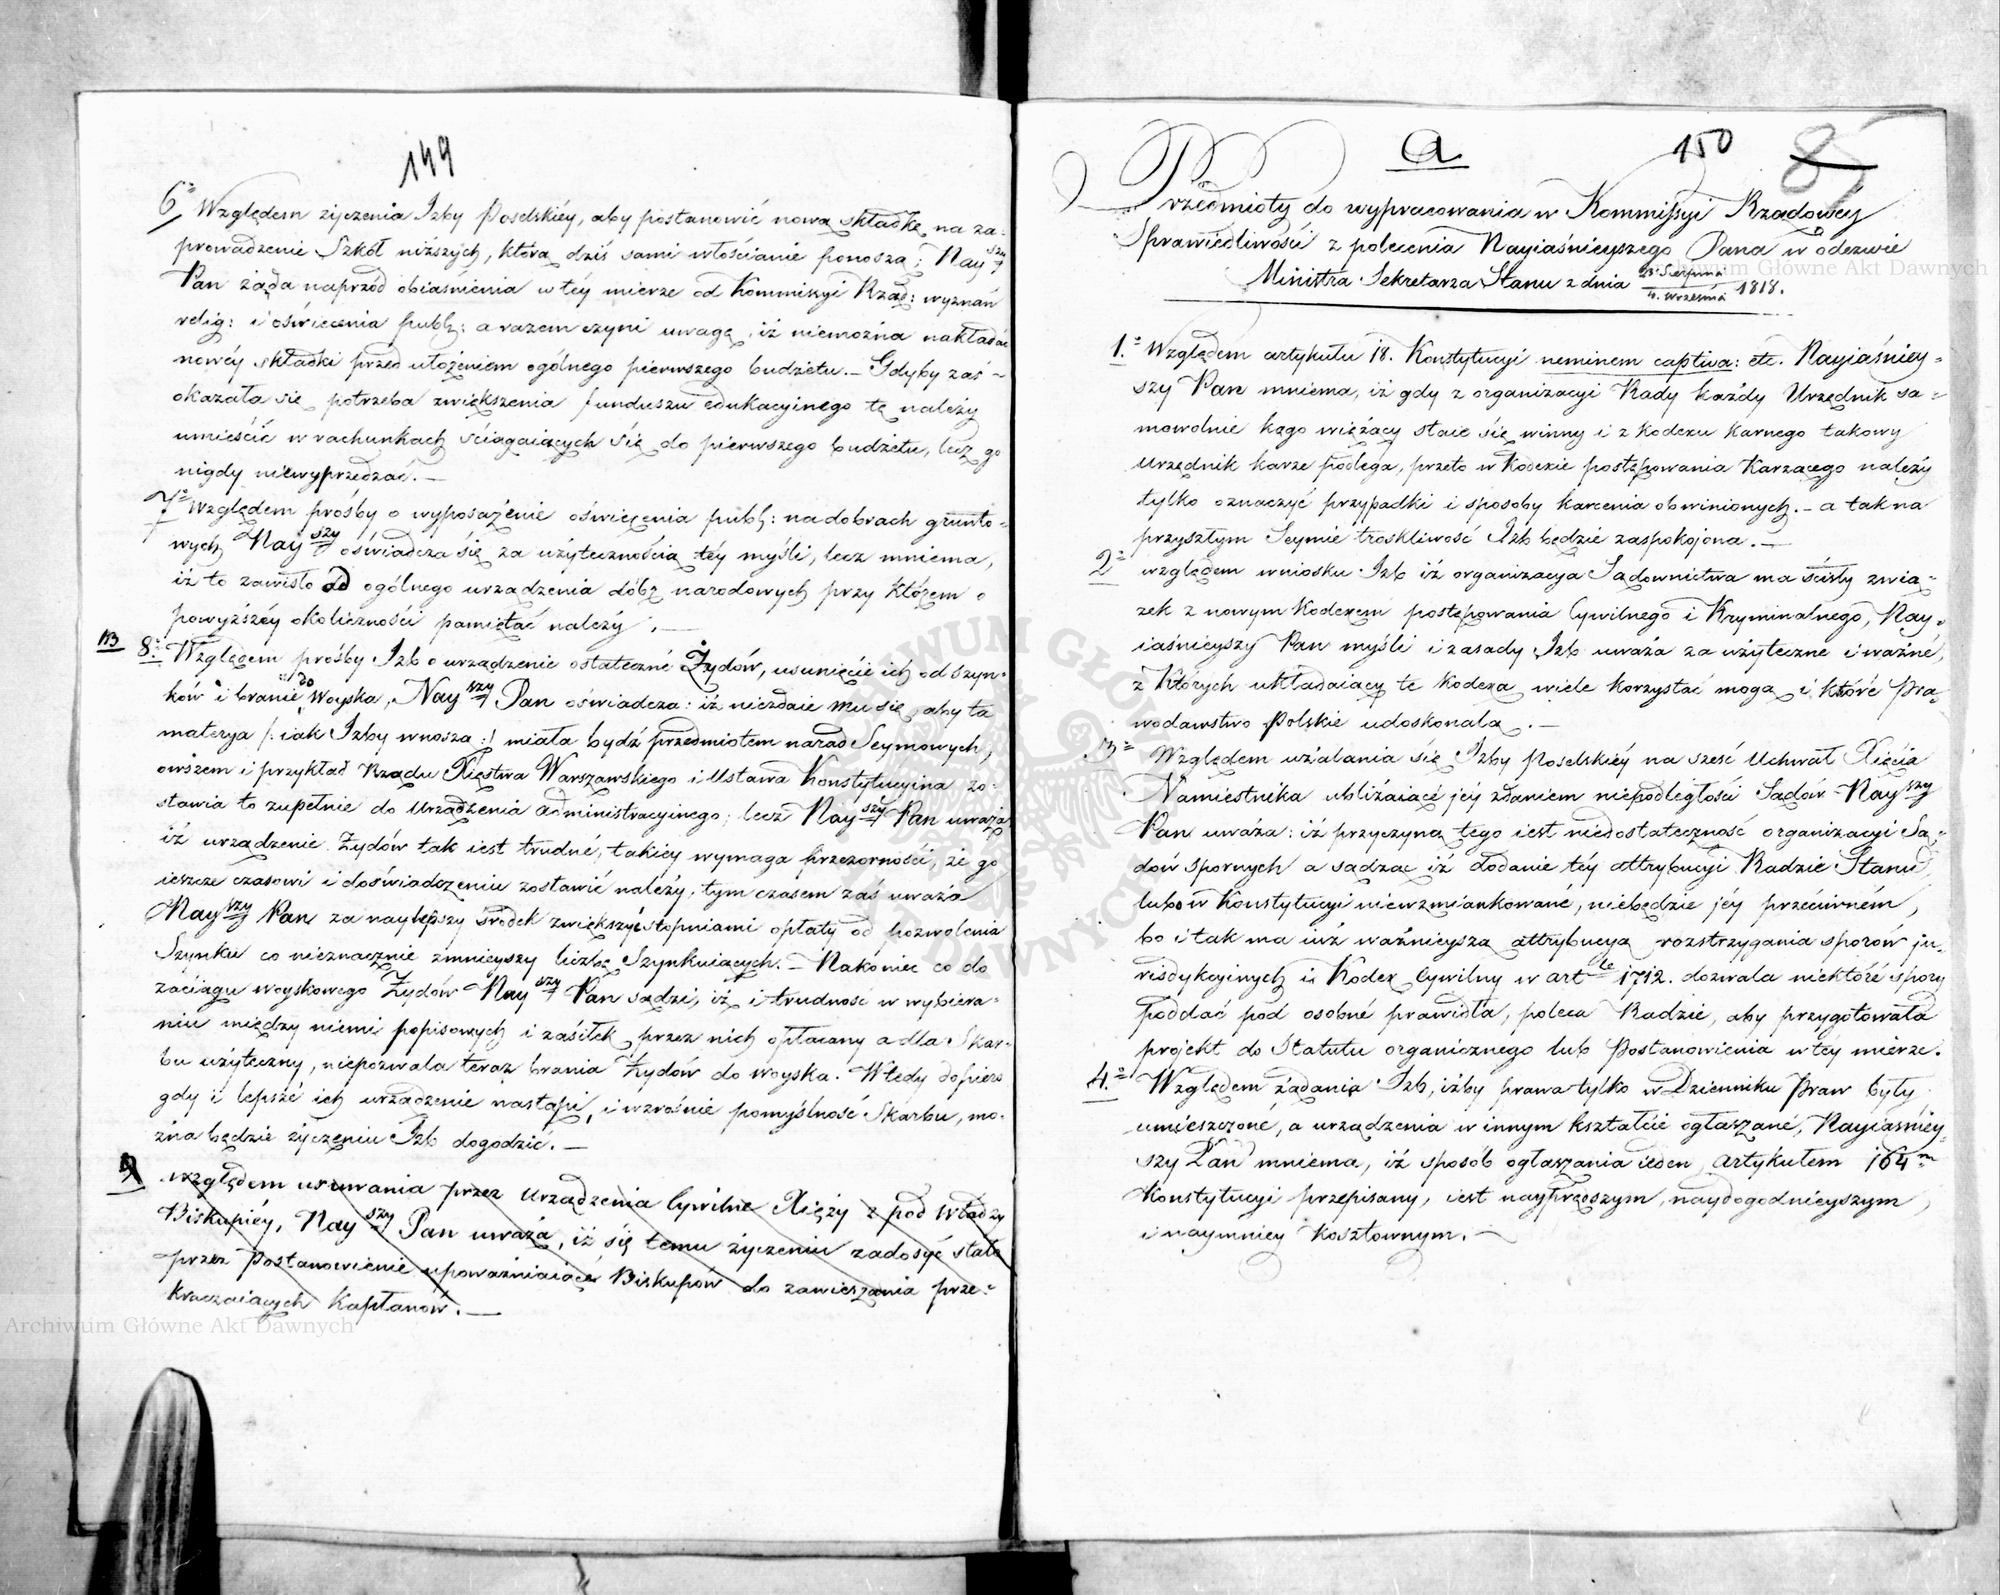 149
6º Względem życzenia Izby Poselskiéy, aby postanowić nową składkę na za-
prowadzenie Szkół niższych, którą dziś sami włościanie ponoszą; Nayszy
Pan żąda naprzód obiasnienia w téy mierze od Kommissyi Rząd: wyznań
relig: i oświecenia publ: a razem czyni uwagę, iż niemożna nakładać
nowéy składki przed ułożeniem ogólnego pierwszego budżetu. – Gdyby zaś –
okazała się potrzeba zwiększenia funduszu edukacyinego tę należy
umieścić w rachunkach ściągaiących się do pierwszego budżetu, lecz go
nigdy niewyprzedzać. –
7º Względem prośby o wyposażenie oświecenia publ: na dobrach grunto-
wych Nayszy oświadcza się za użytecznością téy myśli, lecz mniema,
iż to zawisło od ogólnego urządzenia dóbr narodowych przy którem o
powyższéy okoliczności pamiętać należy. –
NB 8º Względem prośby Izb o urządzenie ostateczne Żydów, usunięcie ich od szyn-
ków i branie do Woyska, Nayszy Pan oświadcza: iż niezdaie mu się, aby ta
materya /: iak Izby wnoszą :/ miała bydź przedmiotem narad Seymowych,
owszem i przykład Rządu Xięstwa Warszawskiego i Ustawa Konstytucyina zo-
stawia to zupełnie do Urządzenia administracyinego; lecz Nayszy Pan uważa
iż urządzenie Żydów tak iest trudné, takiéy wymaga przezorności, że go
ieszcze czasowi i doświadczeniu zostawić należy. tym czasem zaś uważa
Nayszy Pan za naylepszy środek zwiększyć stopniami opłaty od pozwolenia
Szynku co nieznacznie zmnieyszy liczbę Szynkuiących. – Nakoniec co do
zaciągu woyskowego Żydów Nayszy Pan sądzi, iż i trudnosc w wybiera-
niu między niemi popisowych i zasiłek przez nich opłacany a dla Skar-
bu użyteczny, niepozwala teraz brania Żydów do woyska. Wtedy dopiero
gdy i lepszé ich urządzenie nastąpi, i wzrośnie pomyślność Skarbu, mo-
żna będzie życzeniu Izb dogodzic. –
9 względem usuwania przez Urządzenia Cywilne Xięży z pod władzy
Biskupiéy, Nayszy Pan uważa, iż się temu życzeniu zadosyć stało
przez Postanowienie upoważniaiącé Biskupów do zawieszania prze-
kraczaiących Kapłanów. –
a 150 87
Przedmioty do wypracowania w Kommissyi Rządowey
Sprawiedliwości z polecenia Nayiaśnieyszego Pana w odezwie
Ministra Sekretarza Stanu z dnia 23 Sierpnia / 4. Września 1818.
1.º Względem artykułu 18. Konstytucyi neminem captiva: etc. Nayiaśniey-
szy Pan mniema, iż gdy z organizacyi Rady każdy Urzędnik sa-
mowolnie kogo więżący staie się winny i z kodexu karnego takowy
urzędnik karze podlega, przeto w kodexie postępowania karzącego należy
tylko oznaczyć przypadki i sposoby karcenia obwinionych. – a tak na
przyszłym Seymie troskliwość Izb będzie zaspokojona. –
2º względem wniosku Izb iż organizacya Sądownictwa ma ścisły zwią-
zek z nowym kodexem postępowania Cywilnego i Kryminalnego, Nay-
iaśnieyszy Pan myśli i zasady Izb uważa za użyteczne i ważné,
z których układaiący te kodexa wiele korzystać mogą i któré Pra-
wodawstwo Polskie udoskonalą. –
3º Względem użalania się Izby Poselskiéy na sześć Uchwał Xięcia
Namiestnika ubliżaiącé jéy zdaniem niepodległości Sądów Nayszy
Pan uważa: iż przyczyną tego iest niedostateczność organizacyi Są-
dów spornych a sądząc iż dodanie téy attrybucyi Radzie Stanu
lubo w Konstytucyi niewzmiankowané, niebędzie jéy przeciwném,
bo i tak ma iuż ważnieyszą attrybucyą rozstrzygania sporów ju-
risdykcyinych i Kodex Cywilny w artle 1712. dozwala niektóré spory
poddać pod osobné prawidła, poleca Radzie, aby przygotowała
projekt do Statutu organicznego lub Postanowienia w téy mierze.
4.º Względem żądania Izb, iżby prawa tylko w Dzienniku Praw były
umieszczoné, a urządzenia w innym kształcie ogłaszané, Nayiaśniey-
szy Pan mniema, iż sposób ogłaszania ieden artykułem 164m
Konstytucyi przepisany, iest nayprędszym, naydogodnieyszym,
i naymniéy kosztownym. –
Archiwum Główne Akt Dawnych
Archiwum Główne Akt Dawnych